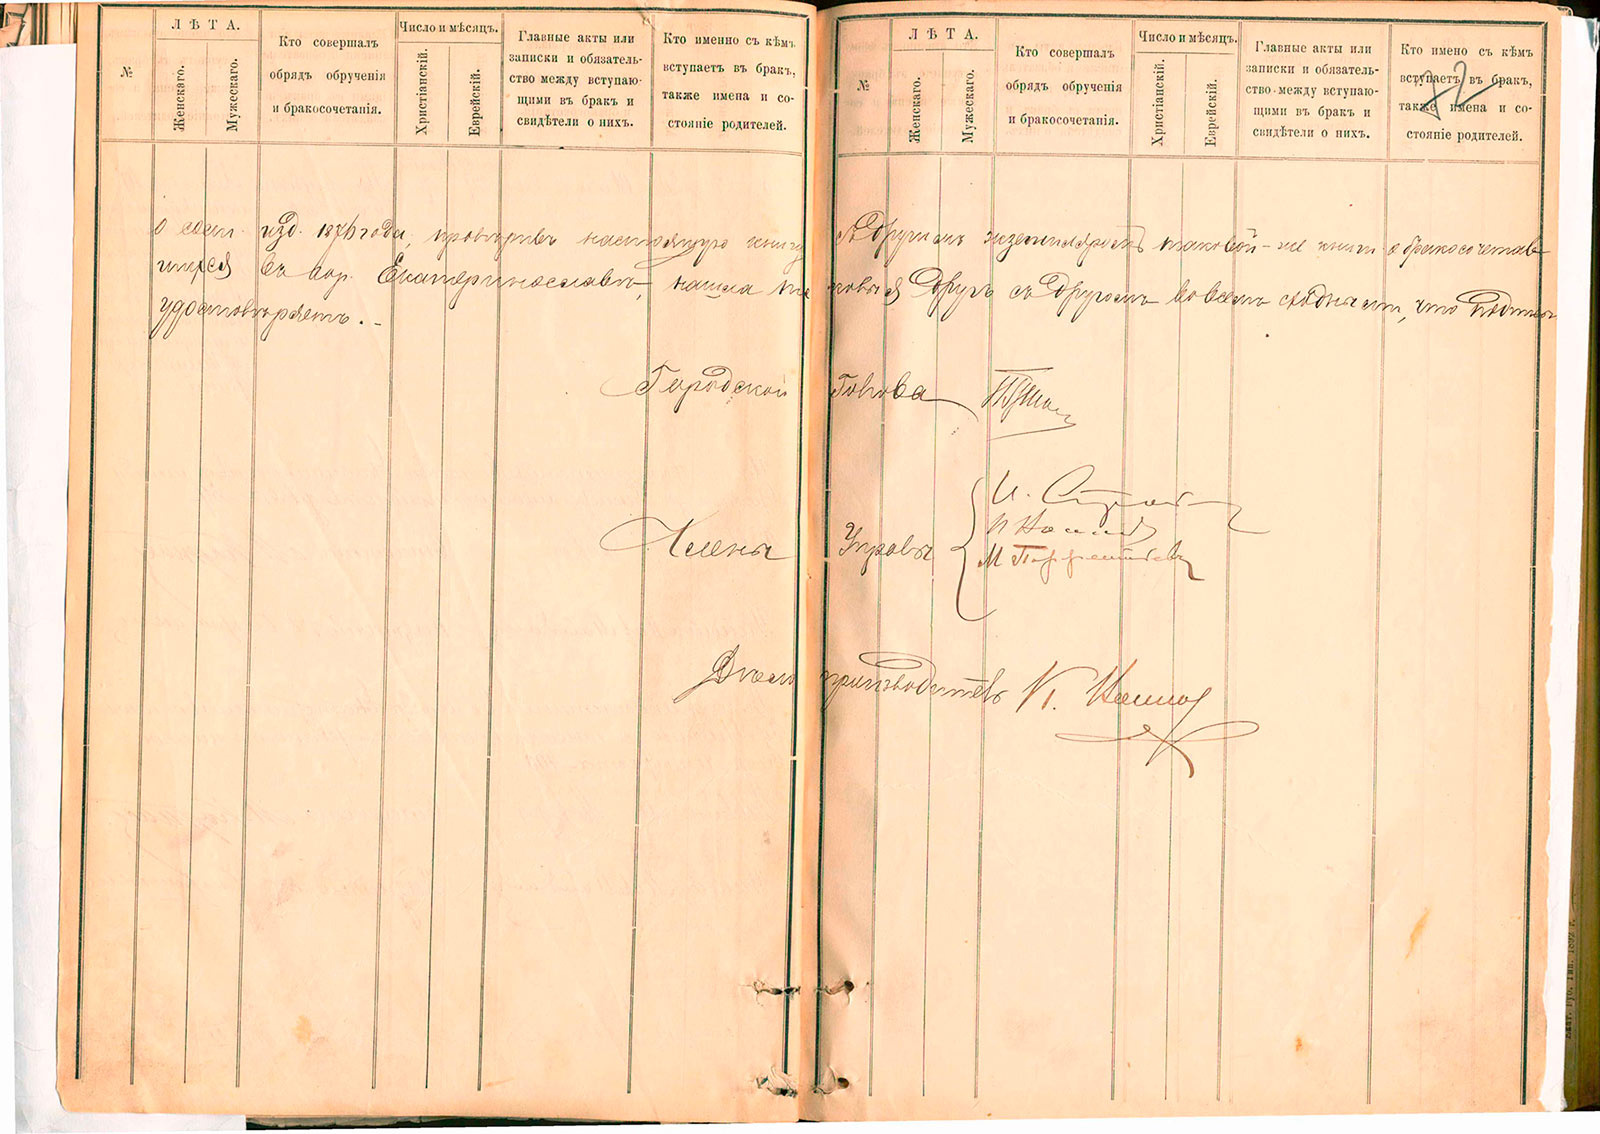 №
ЛѢТА.
Женскаго.
Мужескаго.
Кто совершалъ
обрядъ обрученія
и бракосочетанія.
Число и мѣсяцъ.
Христіанскій.
Еврейскій.
Главные акты или
записки и обязатель-
ство между вступаю-
щими въ бракъ и
свидѣтели о нихъ.
Кто именно съ кѣмъ
вступаетъ въ бракъ,
также имена и со-
стояніе родителей.
№
ЛѢТА.
Женскаго.
Мужескаго.
Кто совершалъ
обрядъ обрученія
и бракосочетанія.
Число и мѣсяцъ.
Христіанскій.
Еврейскій.
Главные акты или
записки и обязатель-
ство между вступаю-
щими въ бракъ и
свидѣтели о нихъ.
Кто имено съ кѣмъ
вступаетъ въ бракъ,
также имена и со-
стояніе родителей.
о сост. изд. 1876 года, провѣривъ настоящую книгу съ другимъ экземпляромъ таковой-же книги о бракосочетав-
шихся въ гор. Екатеринославѣ, нашла таковыя другъ съ другомъ во всемъ сходными, что подписью
удостовѣряетъ.-
Городской Голова
Члены Управы
И.
М
Дѣлопроизводитель